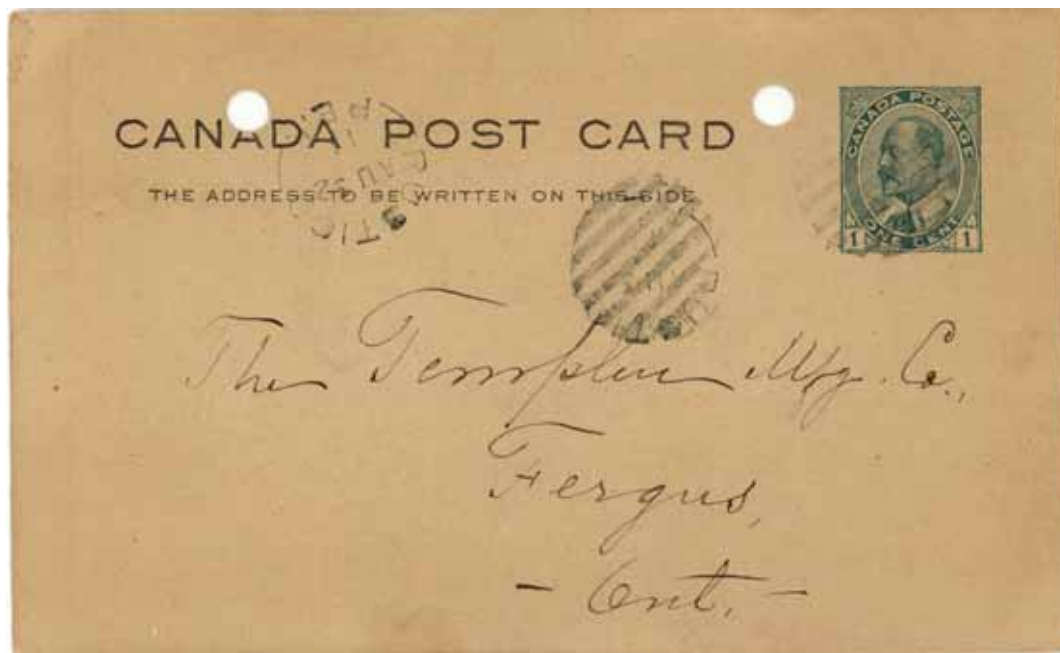 CANADA POST CARD
THE ADDRESS TO BE WRITTEN ON THIS SIDE
CANADA POSTAGE
1 ONE CENT 1
The Templin Mfg. Co.,
Fergus,
- Ont. -